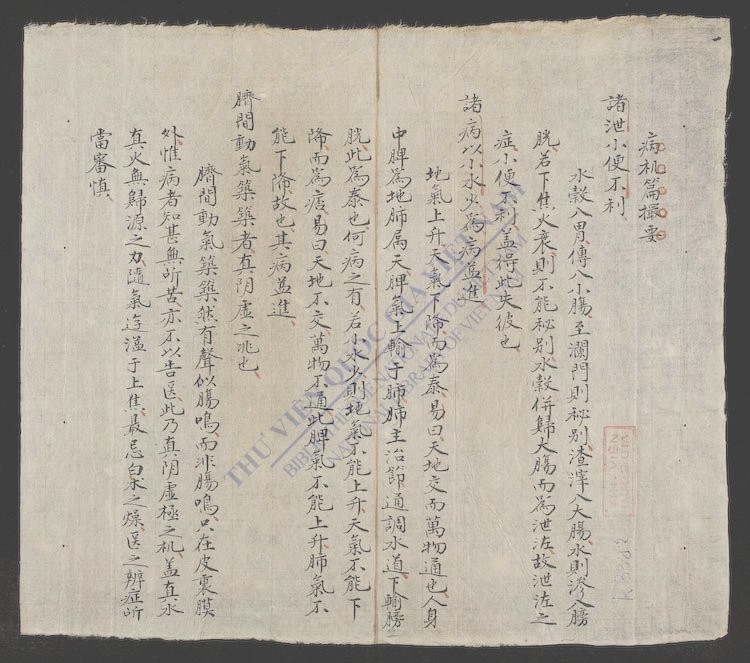 病机篇撮要
諸泄小便不利
水穀入胃傳入小腸至瀾門則秘别渣滓入大腸水則滲入膀
胱若下焦火衰則不能秘别水穀併歸大腸而為泄泻故泄泻之
症小便不利盖得此失彼也
諸病以小水少為病益進
地氣上升天氣下降而為泰易曰天地交而萬物通也人身
中脾為地肺属天脾氣上輸于肺肺主治節通調水道下輸膀
胱此為泰也何病之有若小水少則地氣不能上升天氣不能下
降而為痞易曰天地不交萬物不通此脾氣不能上升肺氣不
能下降故也其病益進
臍間動氣築築者真阴虚之兆也
臍間動氣築築然有聲似腸鳴而非腸鳴只在皮裏膜
外惟病者知甚無所苦亦不以告医此乃真阴虚極之机盖真水
真火無歸源之力隨氣迕溢于上焦最忌白朮之燥医之辨症所
當審慎
THƯ VIỆN QUỐC GIA VIỆT NAM
BIBLIOTHÈQUE NATIONALE DU VIETNAM
NATIONAL LIBRARY OF VIETNAM